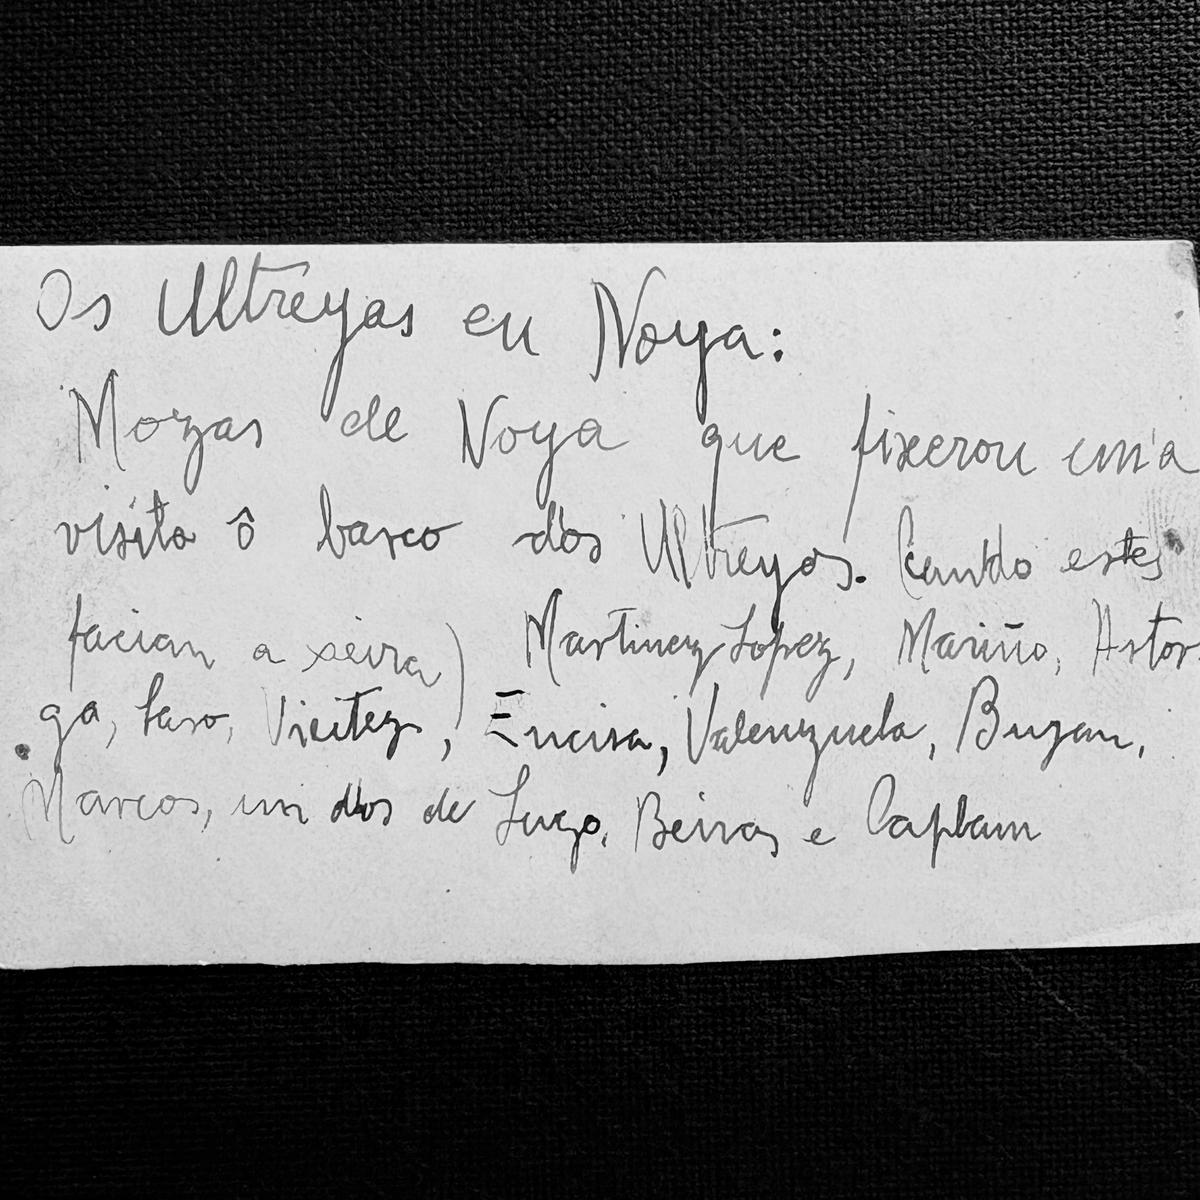 Os Ultreyas en Noya:
Mozas de Noya que fixeron un'a
visita ô barco dos Ultreyas. Cando estes
facian a xeira) Martinez Lopez, Mariño, Astor
ga, Laso, Vieitez, Encisa, Valenzuela, Buján,
Marcos, un dos de Lugo, Beiras e